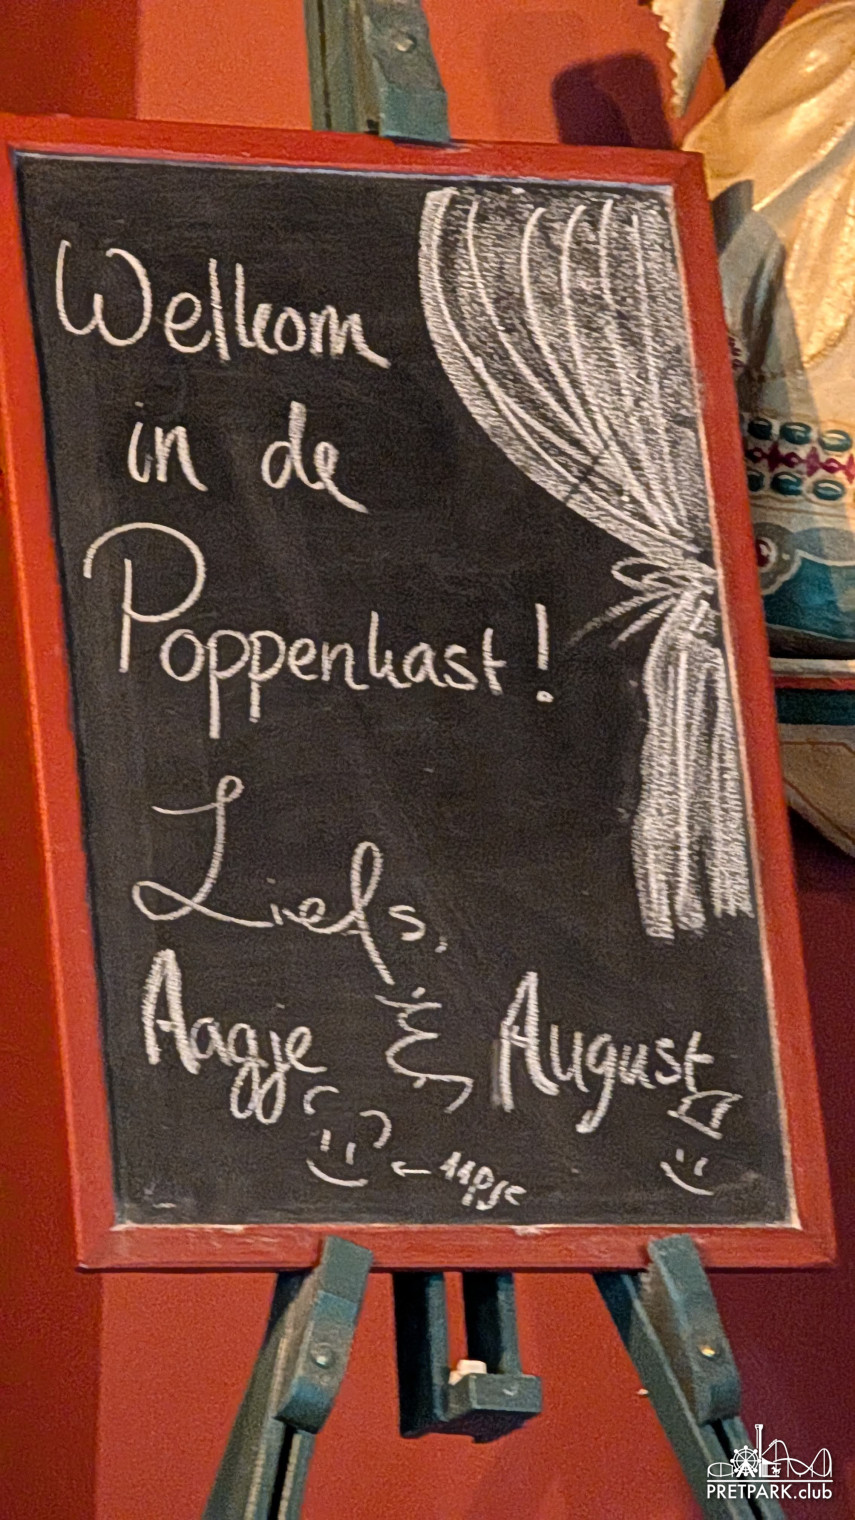 Welkom
in de
Poppenkast!
Liefs,
Aagje & August
← aapje
PRETPARK.club